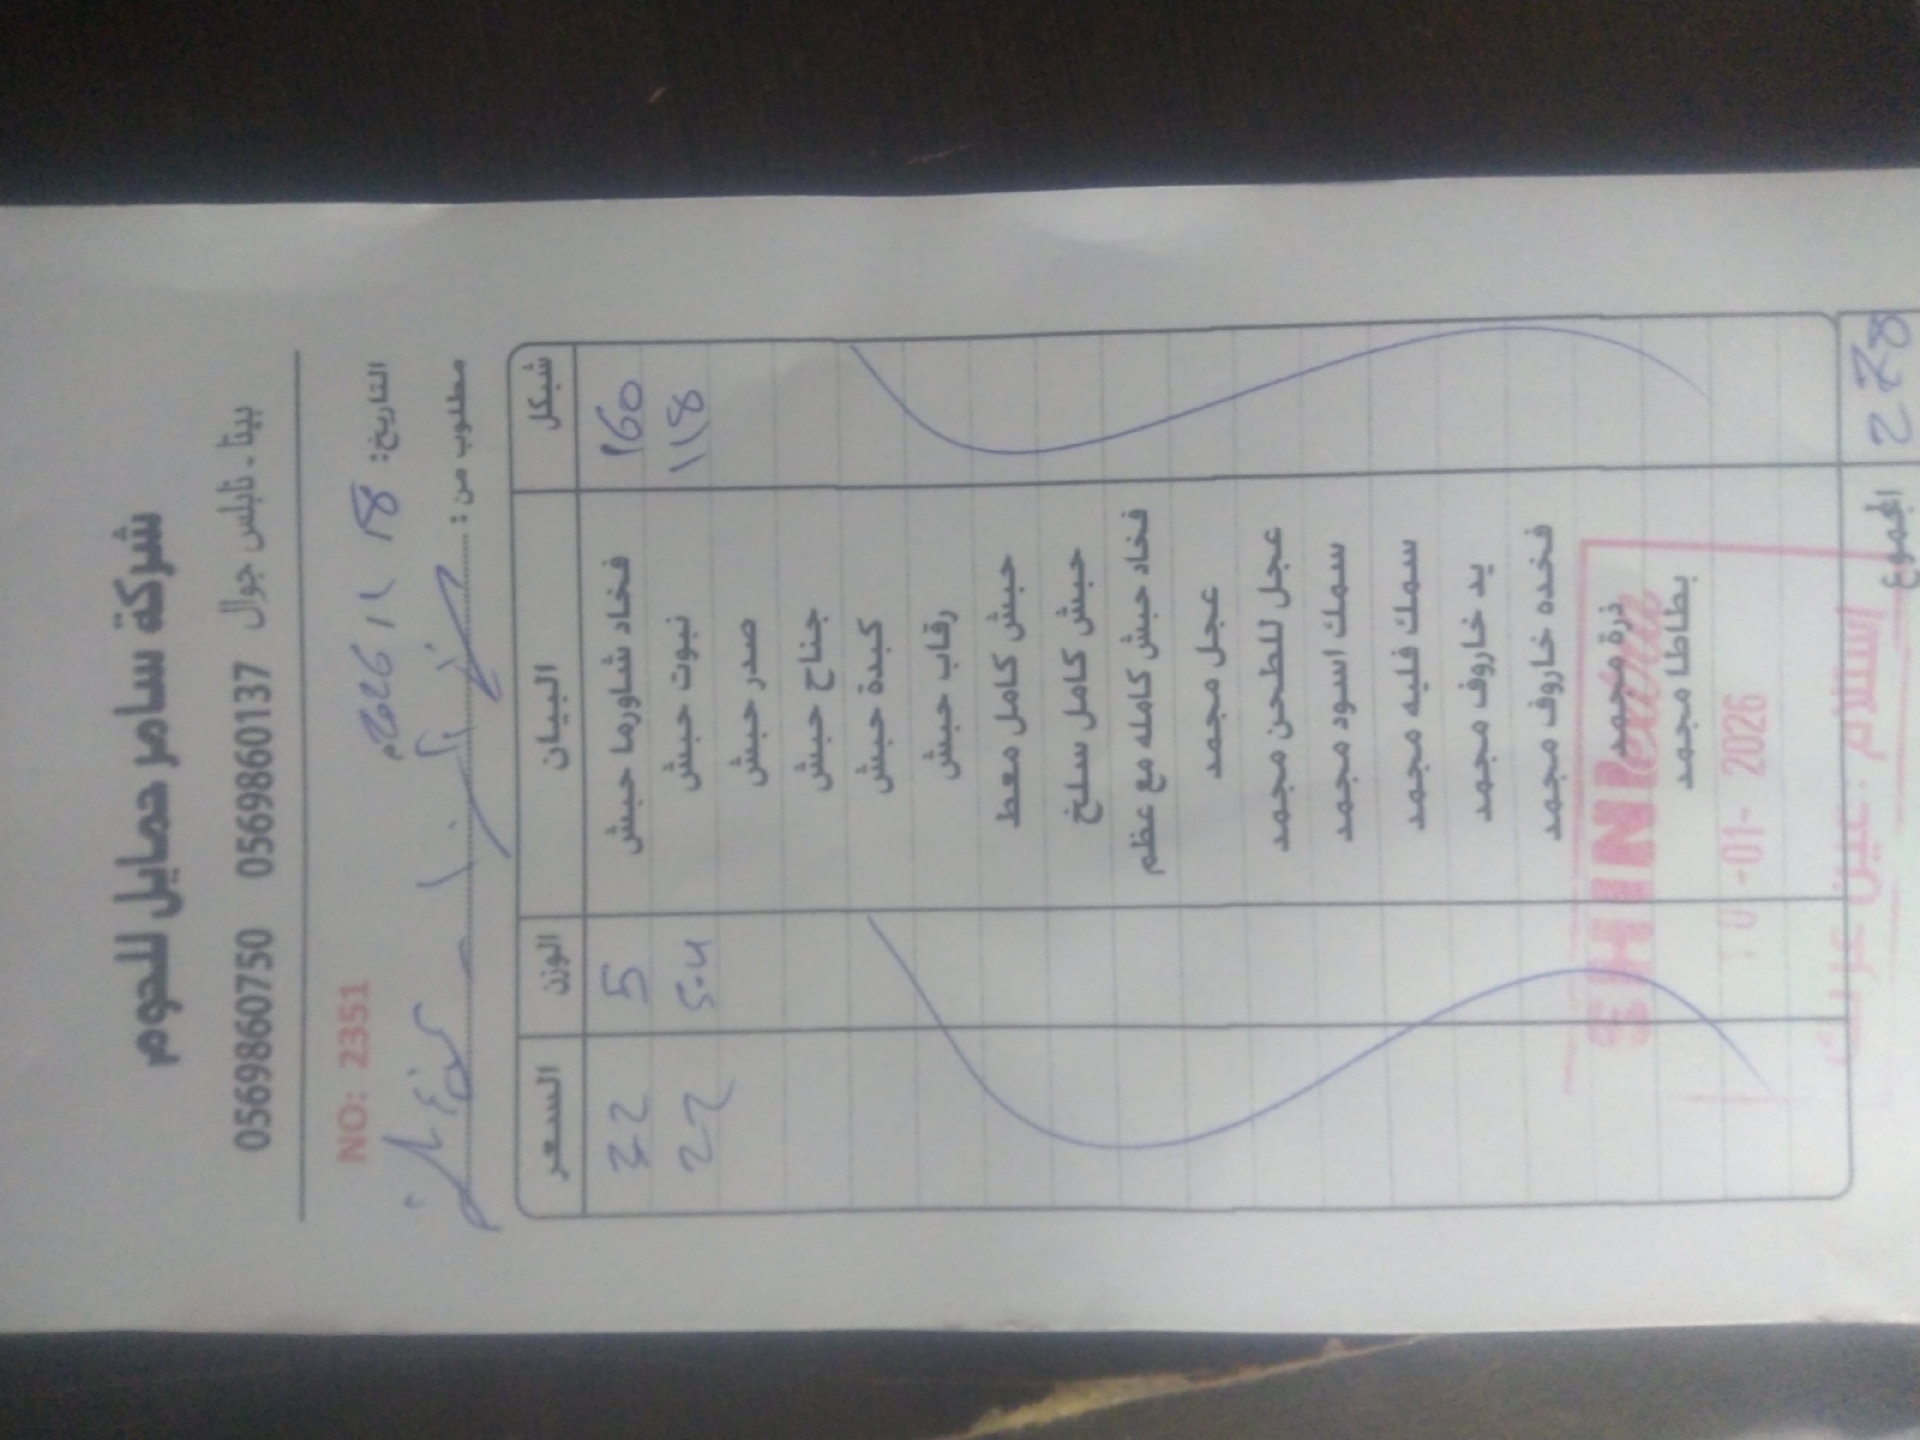 شركة سامر حمايل للحوم
بيتا - نابلس جوال 0569860137 0569860750
التاريخ: 18 / 1 / 2026م NO: 2351
مطلوب من:
شيكل البيان الوزن السعر
160 فخاد شاورما حبش 5 32
118 نبوت حبش
صدر حبش
جناح حبش
كبدة حبش
رقاب حبش
حبش كامل معط
حبش كامل سلخ
فخاد حبش كامله مع عظم
عجل مجمد
عجل للطحن مجمد
سمك اسود مجمد
سمك فليه مجمد
يد خاروف مجمد
فخده خاروف مجمد
ذرة مجمد
بطاطا مجمد
SHINI
-01- 2026
278 المجموع
استلام